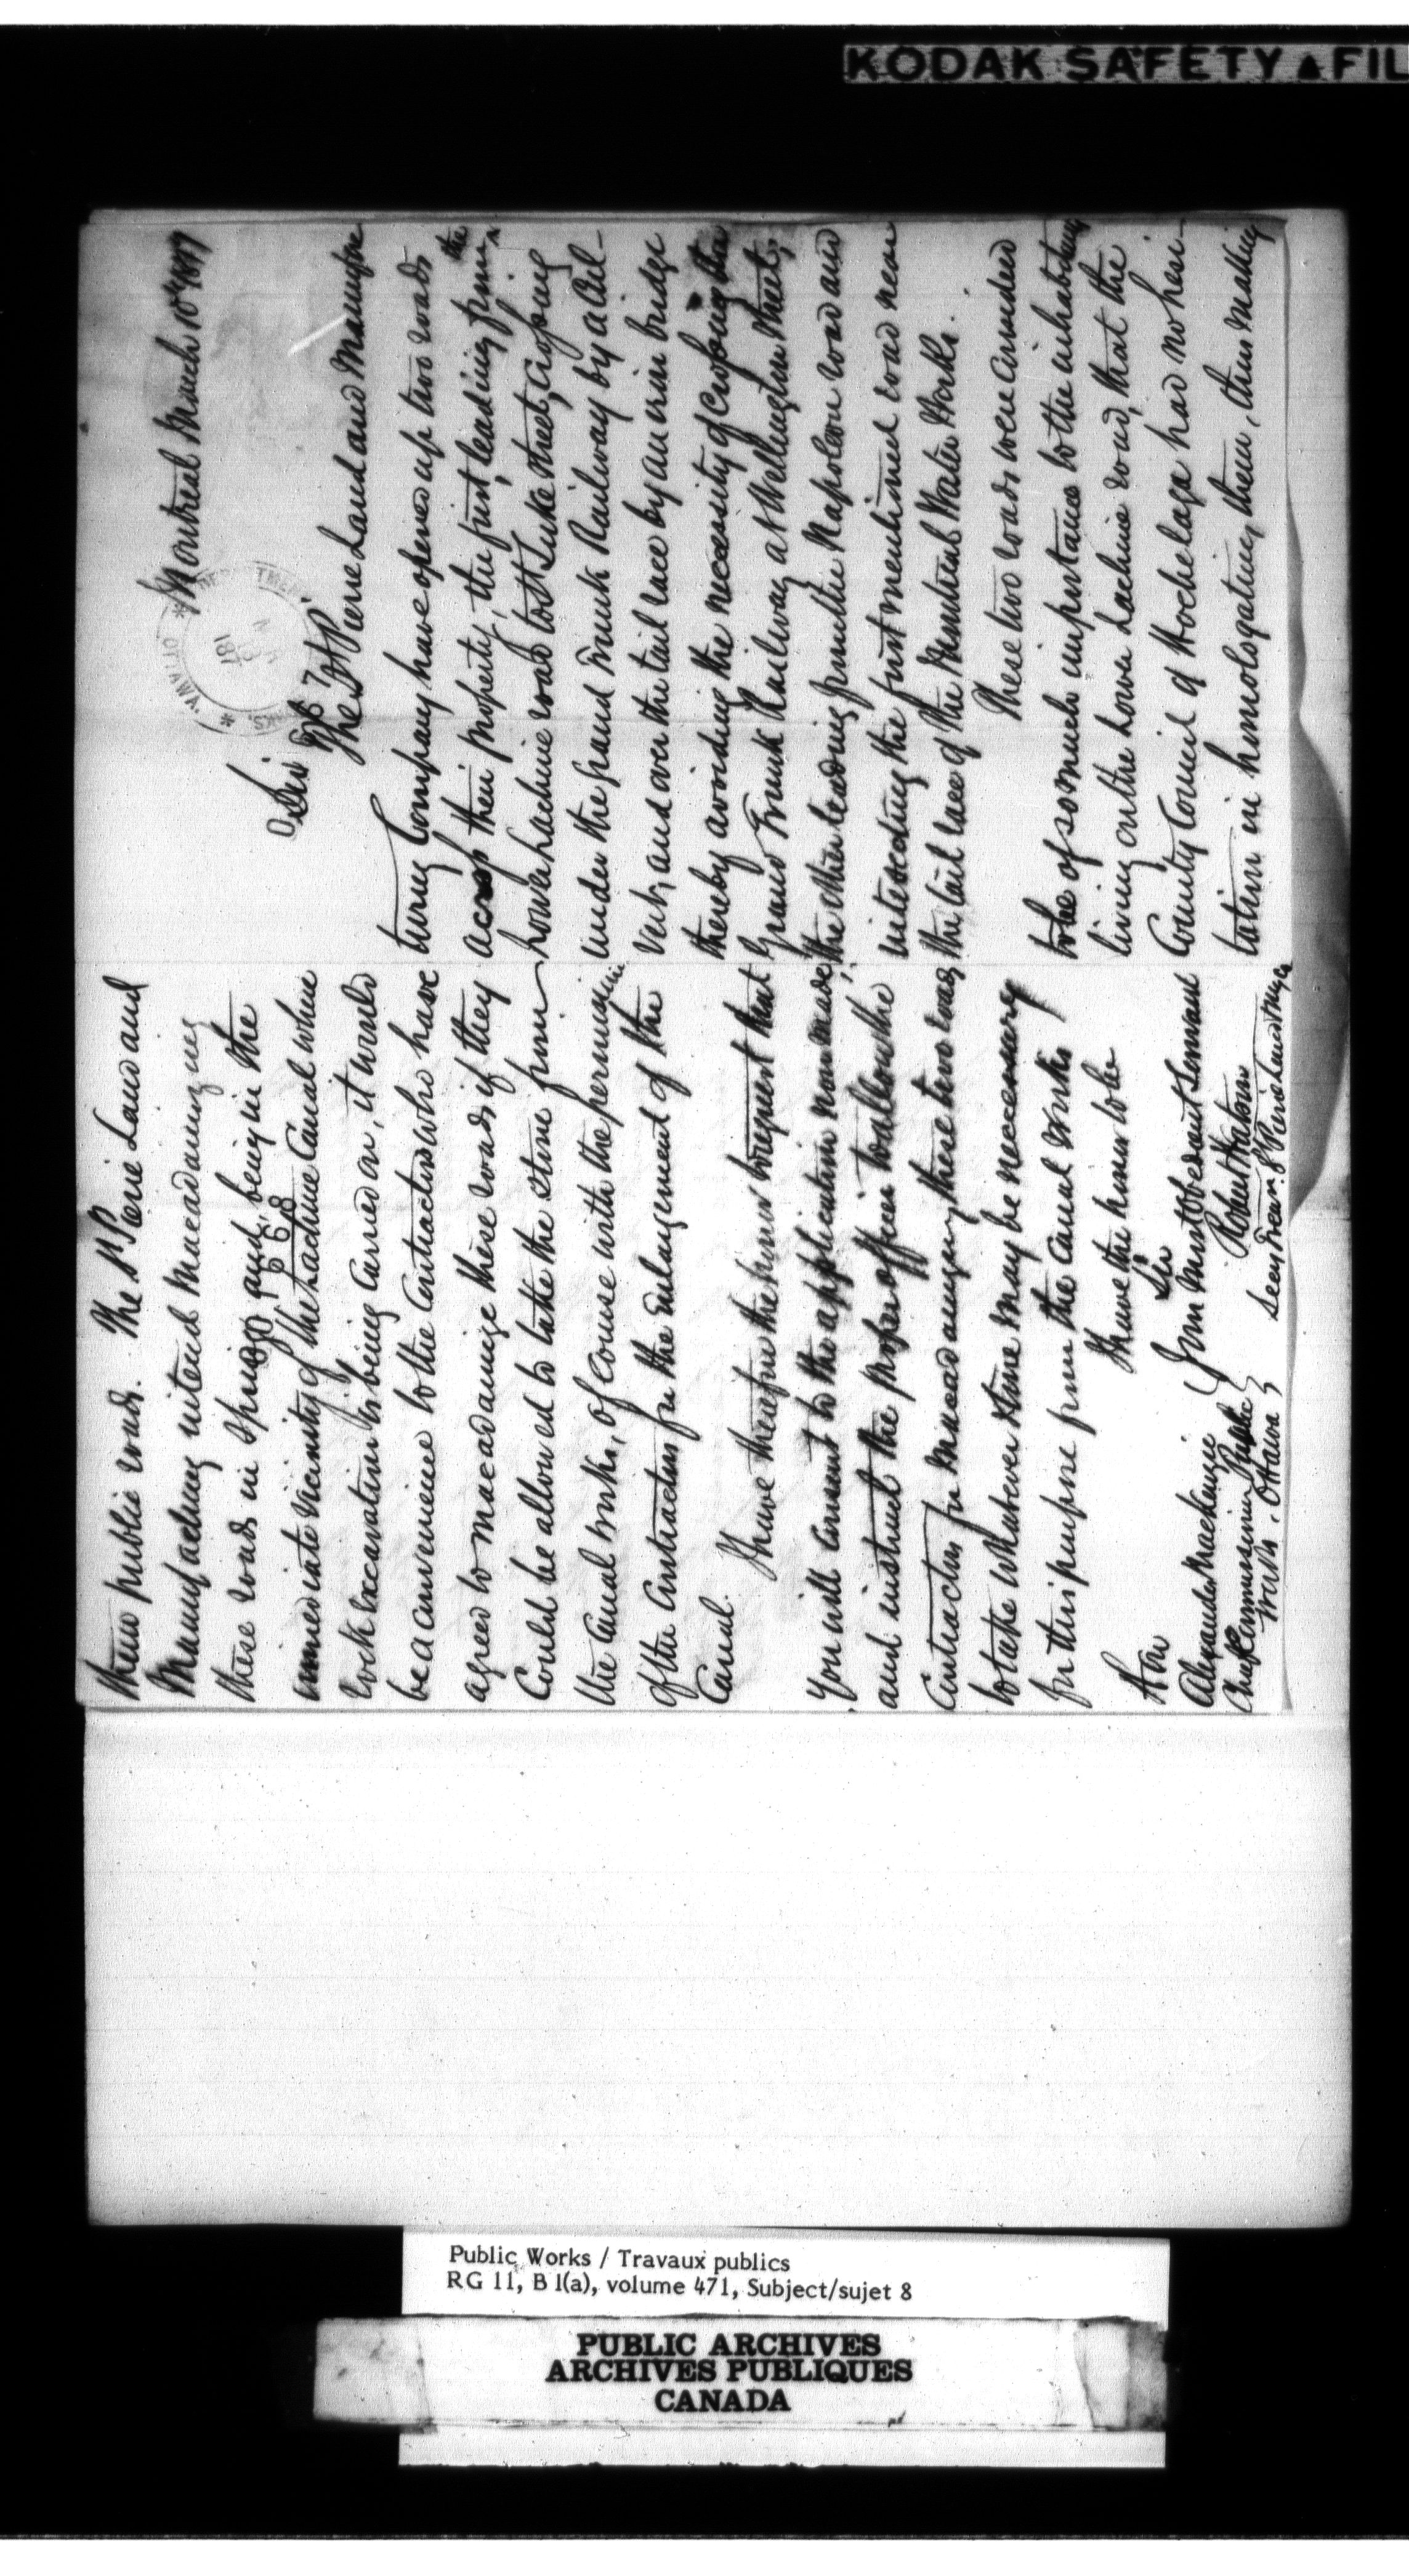 KODAK SAFETY ▲ FIL
Montreal March 10th 1877
Sir
The St Pierre Land and Manufac
turing Company have opened up two roads
across their property, the first, leading from the
Lower Lachine road to St Luke Street, crossing
under the Grand Trunk Railway by a Cul-
vert, and over the tail race by an iron bridge
thereby avoiding the necessity of crossing the
Grand Trunk Railway at Wellington Street;
the other leading from the Napoleon road and
intersecting the first mentioned road near
the tail race of the Montreal Water Works.
These two roads were considered
to be of so much importance to the inhabitants
living on the Lower Lachine road, that the
County Council of Hochelaga had no hesi-
tation in homologating them, thus making
them public roads. The St Pierre Land and
Manufacturing intend macadamizing
these roads in Spring and, being in the
immediate vicinity of the Lachine Canal where
rock excavation is being carried on, it would
be a convenience to the Contractors who have
agreed to macadamize these roads if they
could be allowed to take the stone from
the Canal works, of course with the permission
of the Contractors for the Enlargement of the
Canal.
I have therefore the honor to request that
you will consent to the application now made,
and instruct the proper officer to allow the
Contractors for macadamizing these two roads
to take whatever stone may be necessary
for this purpose from the Canal works
I have the honor to be
Sir
Your most obedient Servant
Robert Watson
Secy Treas. St Pierre Land Mfg Co
Hon
Alexander Mackenzie
Chief Commissioner Public
Works, Ottawa
Public Works / Travaux publics
RG 11, B 1(a), volume 471, Subject/sujet 8
PUBLIC ARCHIVES
ARCHIVES PUBLIQUES
CANADA